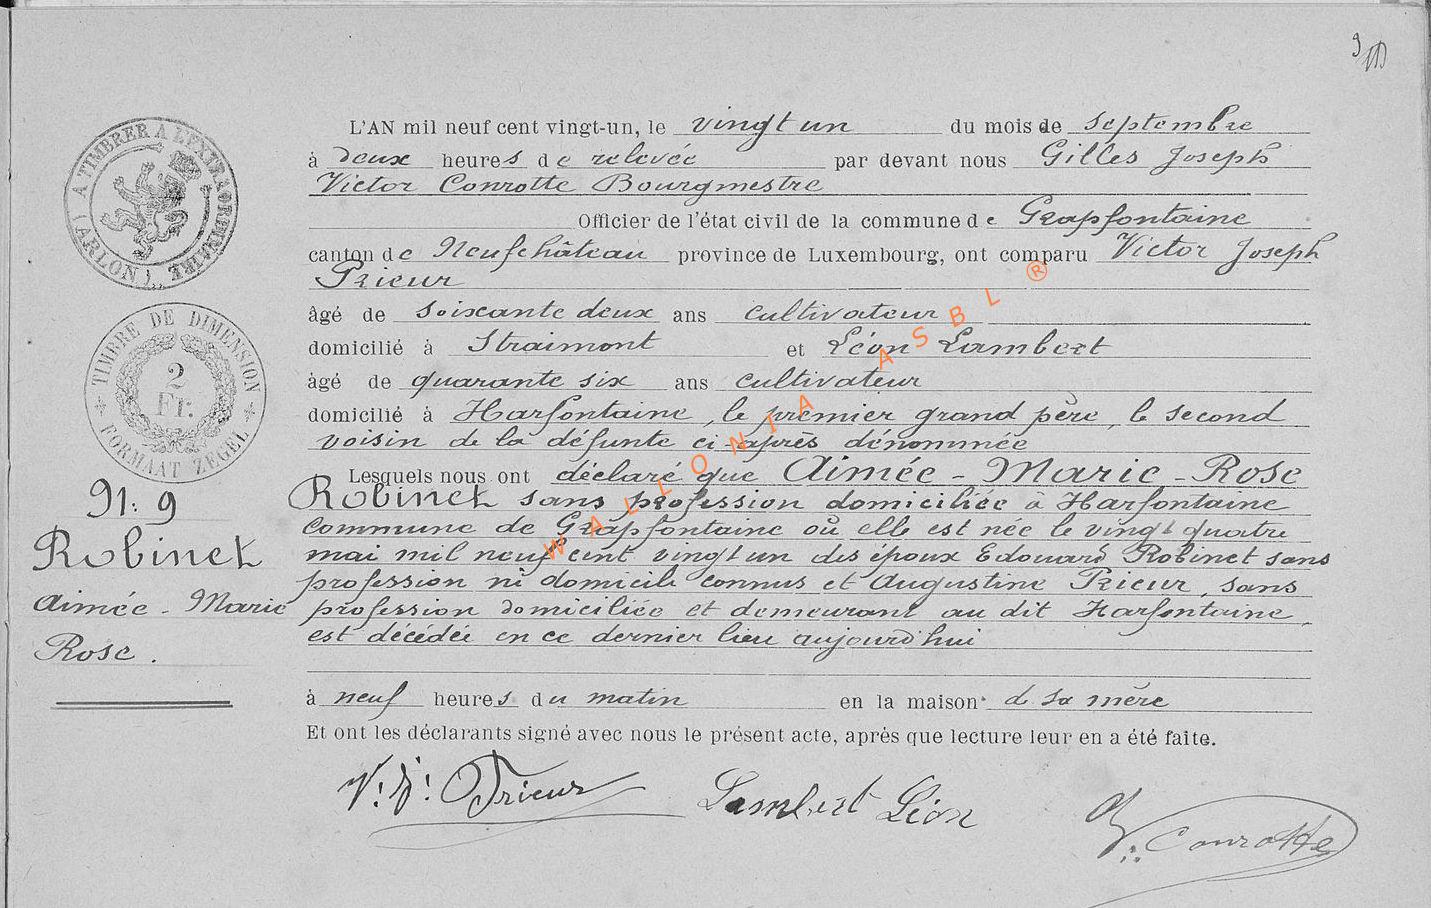 9
( A TIMBRER A L'EXTRAORDINAIRE ( ARLON )
TIMBRE DE DIMENSION
2
Fr.
FORMAAT ZEGEL
L'AN mil neuf cent vingt-un, le vingt un du mois de septembre
à deux heures de relevée par devant nous Gilles Joseph
Victor Conrotte Bourgmestre
Officier de l'état civil de la commune de Grapfontaine
canton de Neufchâteau province de Luxembourg, ont comparu Victor Joseph
Prieur
âgé de soixante deux ans cultivateur
domicilié à Straimont et Léon Lambert
âgé de quarante six ans cultivateur
domicilié à Harfontaine, le premier grand père, le second
voisin de la défunte ci-après dénommée
Lesquels nous ont déclaré que Aimée-Marie-Rose
Robinet sans profession domiciliée à Harfontaine
commune de Grapfontaine où elle est née le vingt quatre
mai mil neuf cent vingt un des époux Edouard Robinet sans
profession ni domicile connus et Augustine Prieur, sans
profession domiciliée et demeurant au dit Harfontaine,
est décédée en ce dernier lieu aujourd'hui
à neuf heures du matin en la maison d sa mère
Et ont les déclarants signé avec nous le présent acte, après que lecture leur en a été faite.
N: 9
Robinet
Aimée-Marie
Rose.
V. J. Prieur
Lambert Léon
V. Conrotte
WALLONIA ASBL ®